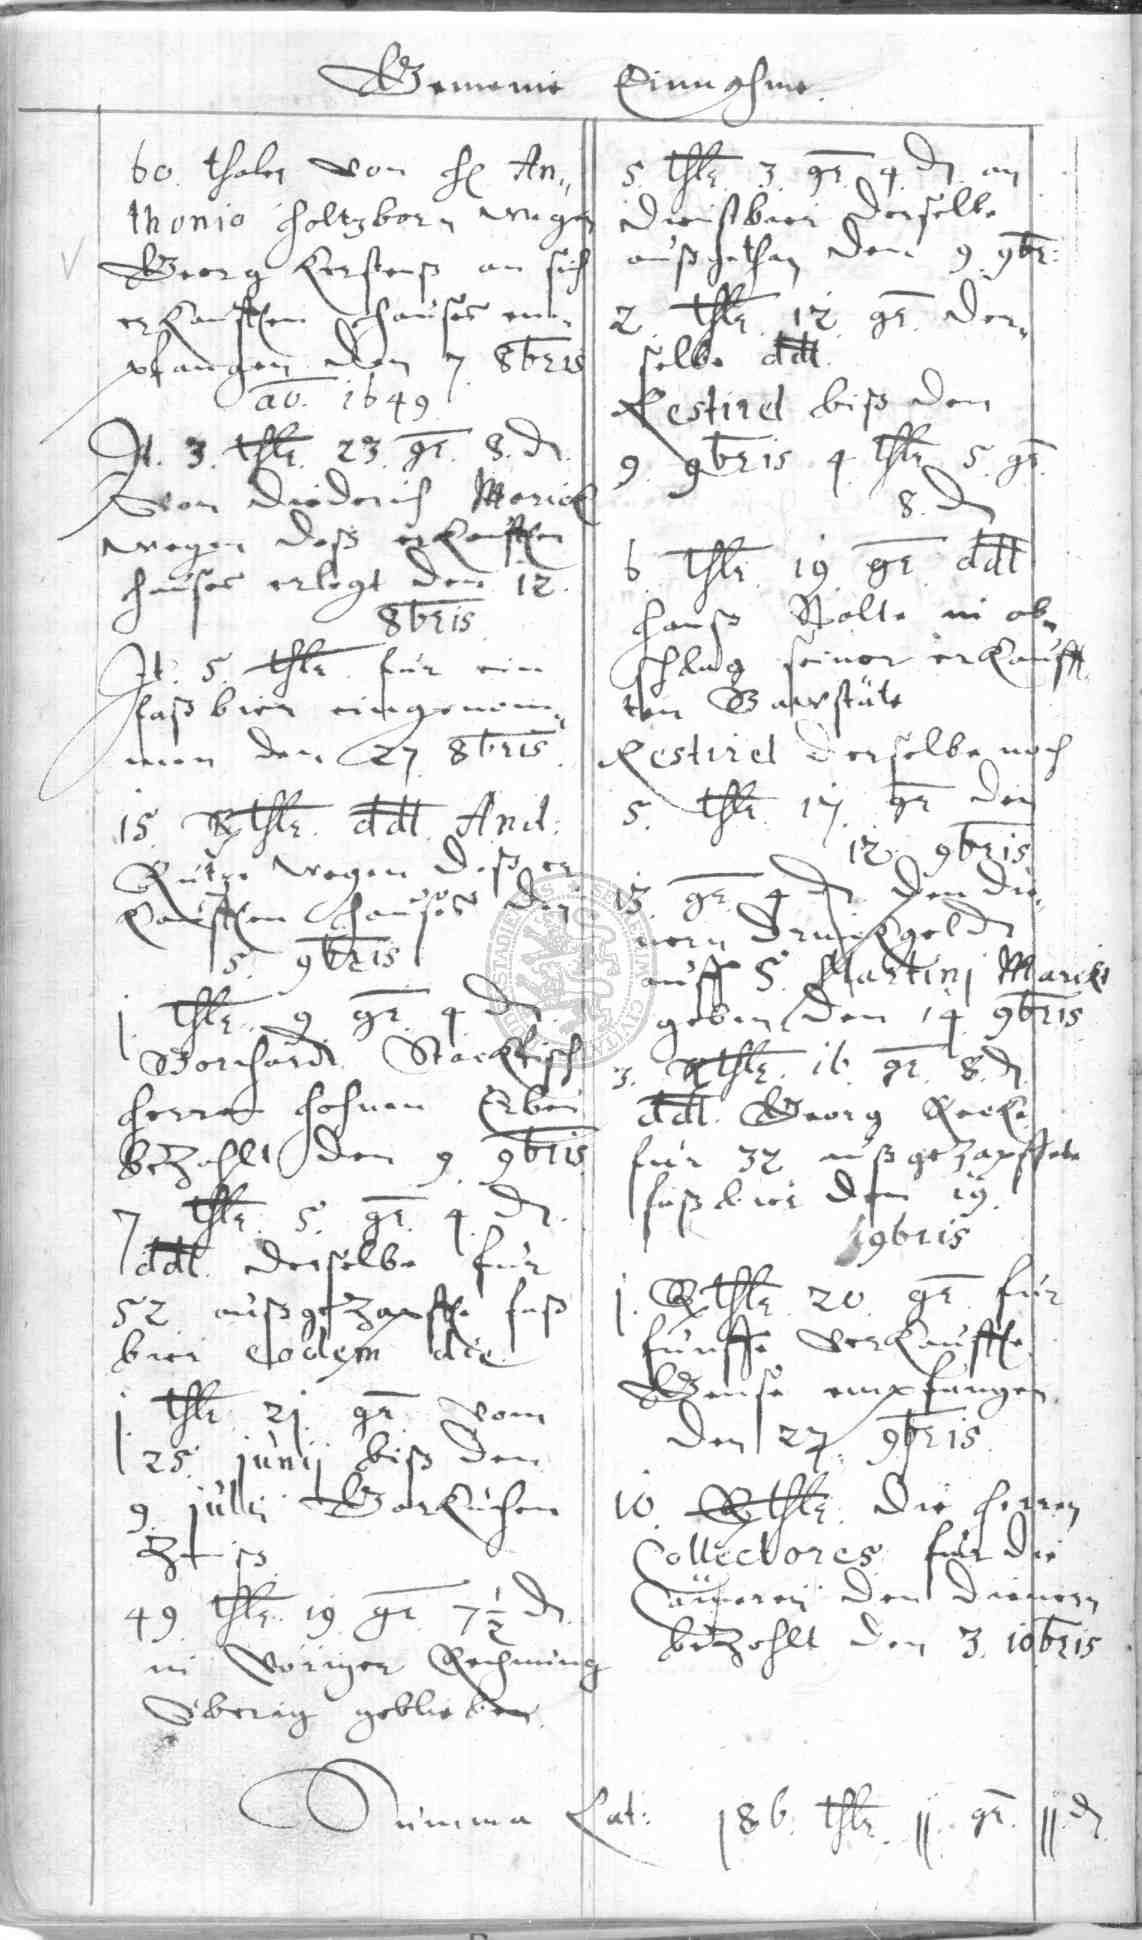 Gemeine Einnahme.
60. thaler von H. An-
thonio Holtzborn wegen
Georg Kerstenß an sich
erkaufften Hauses em-
pfangen den 7. 8bris
ao. 1649
It. 3. thlr. 23. gr. 8. d.
von Diederich Morick
wegen deß erkaufften
Hauses erlegt den 12.
8bris
It. 5. thlr. für ein
faß bier eingenom-
men den 27. 8bris.
15. Rthlr. ddt. And.
wegen deß er
kaufften Hauses den
5. 9bris
1. thlr. 9 gr. 4. d.
Borchardt Stockfisch
Herren Erben
bezahlt den 9. 9bris
7 thlr. 5. gr. 4. d.
ddt. derselbe für
52 außgezapffte faß
bier eodem die
1 thlr 21. gr vom
25. junij biß den
9. julij Garküchen
Zinß
49. thlr. 19. gr 7½ d.
in voriger Rechnung
Überig geblieben.
5. thlr. 3. gr. 4. d. an
derselbe
außgethan den 9 9br:
2. thlr. 12. gr. der-
selbe ddt.
Restiret biß den
9. 9bris 4. thlr 5. gr.
8. d.
6. thlr. 19 gr. ddt
Hanß Nolte in ab-
schlag seiner erkauff-
ten Bawstäte
Restiret derselbe noch
5. thlr 17. gr den
12. 9bris
15. gr. 4 d. den die-
nern Drinckgeldt
auff S. Martinj Marckt
geben den 14 9bris
3. Rthlr. 16. gr. 8. d.
ddt. Georg Recke
für 32 außgezapffete
faß bier den 19.
9bris
1. Rthlr 20. gr. für
fünffe verkauffte
Gense empfangen
den 27. 9bris.
10. Rthlr. die Herren
Collectores für die
Cämerey den dienern
bezahlt den 3. 10bris
Summa Lat: 186. thlr. 11. gr. 11. d.